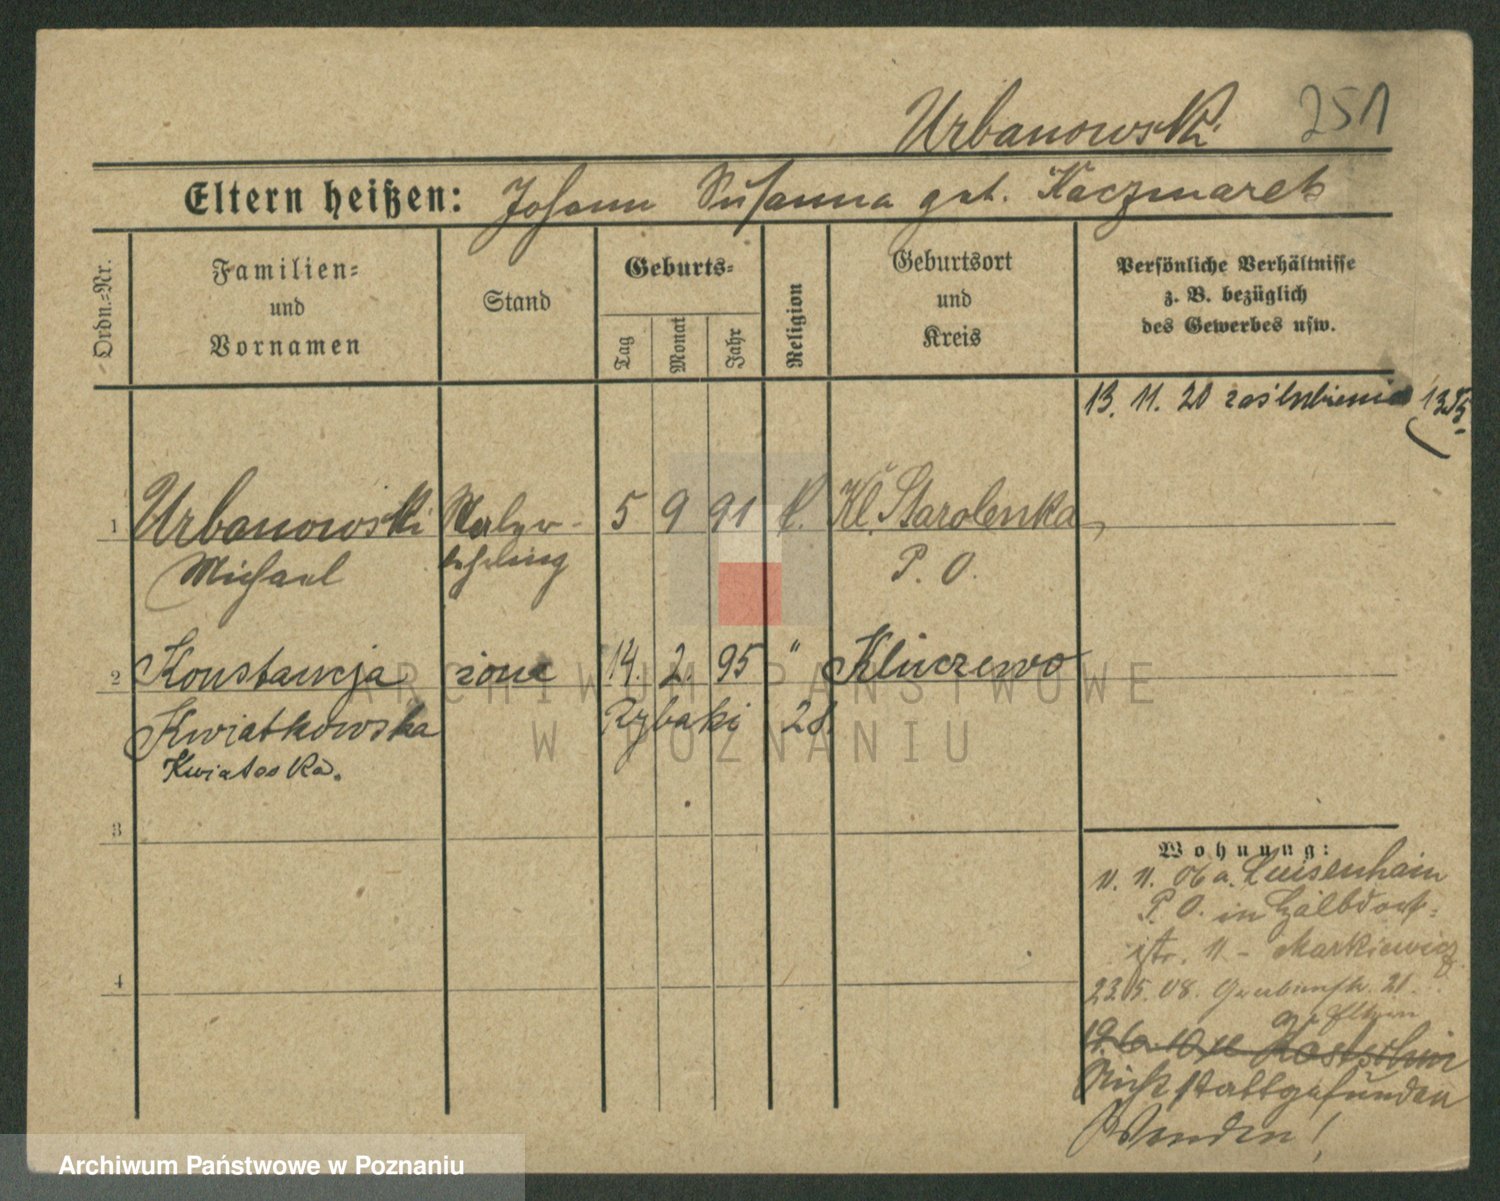 Urbanowski 251
Eltern heißen: Johann Susanna geb. Kaczmarek
Ordn.-Nr.
Familien-
und
Vornamen
Stand
Geburts-
Tag
Monat
Jahr
Religion
Geburtsort
und
Kreis
Persönliche Verhältnisse
z. B. bezüglich
des Gewerbes usw.
13. 11. 20 zaślubienie
1 Urbanowski 5 9 91 k. Kl. Starolenka
Michael P. O.
2 Konstancja żona 14. 2. 95 " Kluczewo
Kwiatkowska Rybaki 28.
Kwiatoska.
3
4
Wohnung:
11. 11. 06 a. Luisenhain
P. O. in
str. 11 - Markiewicz
23.5.08. Gerberstr. 21.
z. Eltern
Nicht stattgefunden
Wenden!
ARCHIWUM PAŃSTWOWE
W POZNANIU
Archiwum Państwowe w Poznaniu